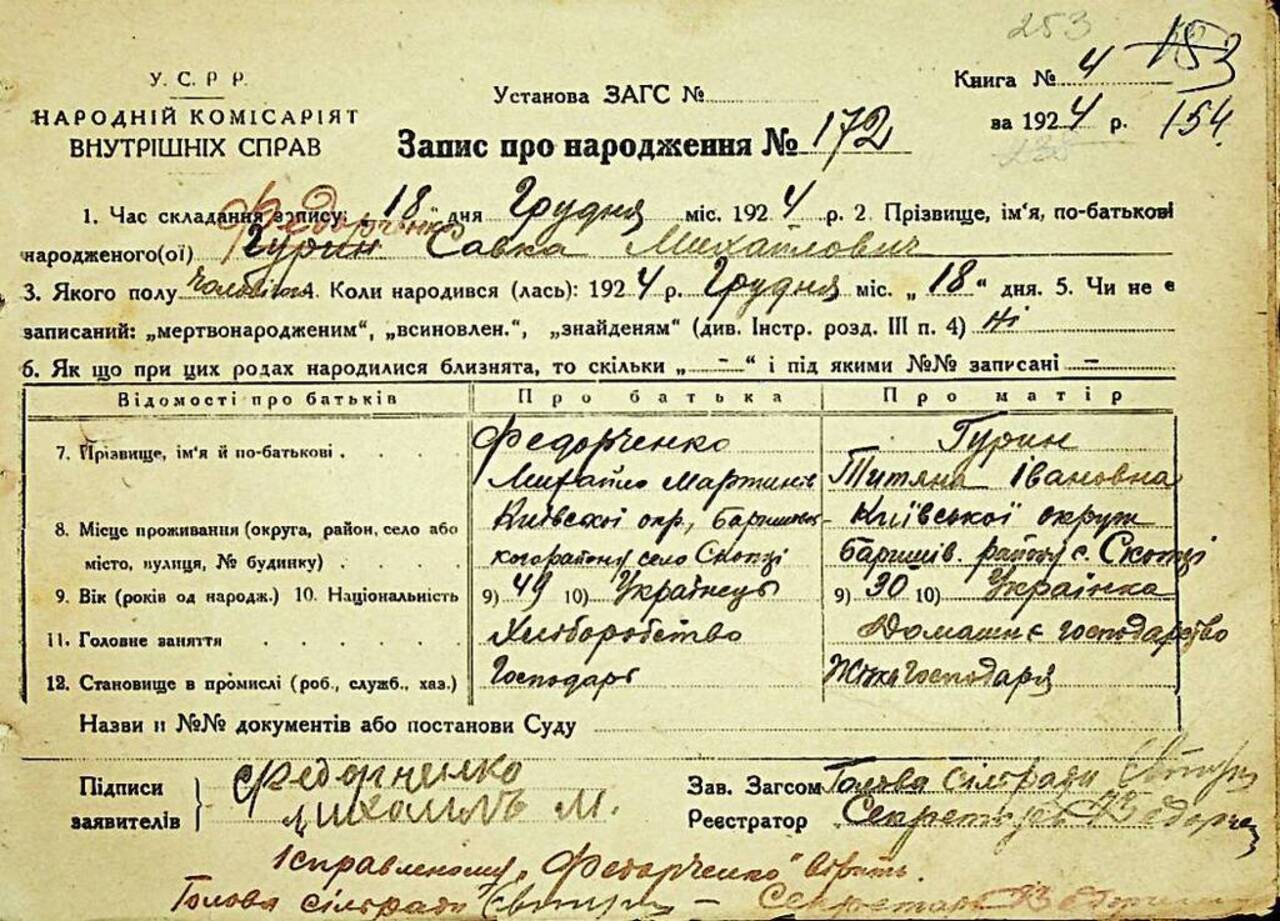 253
У. С. Р Р.
НАРОДНІЙ КОМІСАРІЯТ
ВНУТРІШНІХ СПРАВ
Установа ЗАГС №
Книга № 4 153
за 1924 р. 154
Запис про народження № 172
Федорченко
1. Час складання запису: „18“ дня Грудня міс. 1924 р. 2. Прізвище, ім'я, по-батькові
народженого(ої) Гурин Савка Михайлович
3. Якого полу 4. Коли народився (лась): 1924 р. Грудня міс. „18“ дня. 5. Чи не є
записаний: „мертвонародженим“, „всиновлен.“, „знайденям“ (див. Інстр. розд. III п. 4) Ні
6. Як що при цих родах народилися близнята, то скільки „ - “ і під якими №№ записані -
Відомості про батьків Про батька Про матір
7. Прізвище, ім'я й по-батькові Федорченко Гурин
Михайло Мартинів Титяна Івановна
8. Місце проживання (округа, район, село або Київської окр., Киівської округ
місто, вулиця, № будинку) село Скопці Баришів. району с. Скопці
9. Вік (років од народж.) 10. Національність 9) 49 10) Українець 9) 30 10) Українка
11. Головне заняття Хліборобство Домашнє господарство
12. Становище в промислі (роб., служб., хаз.) Господарь Жінка Господаря
Назви и №№ документів або постанови Суду
Підписи
заявителів
Федорченко
М.
Зав. Загсом Голова сілради
Реєстратор Секретарь
Ісправленому „Федорченко“ вірить.
Голова сілради - Секретарь